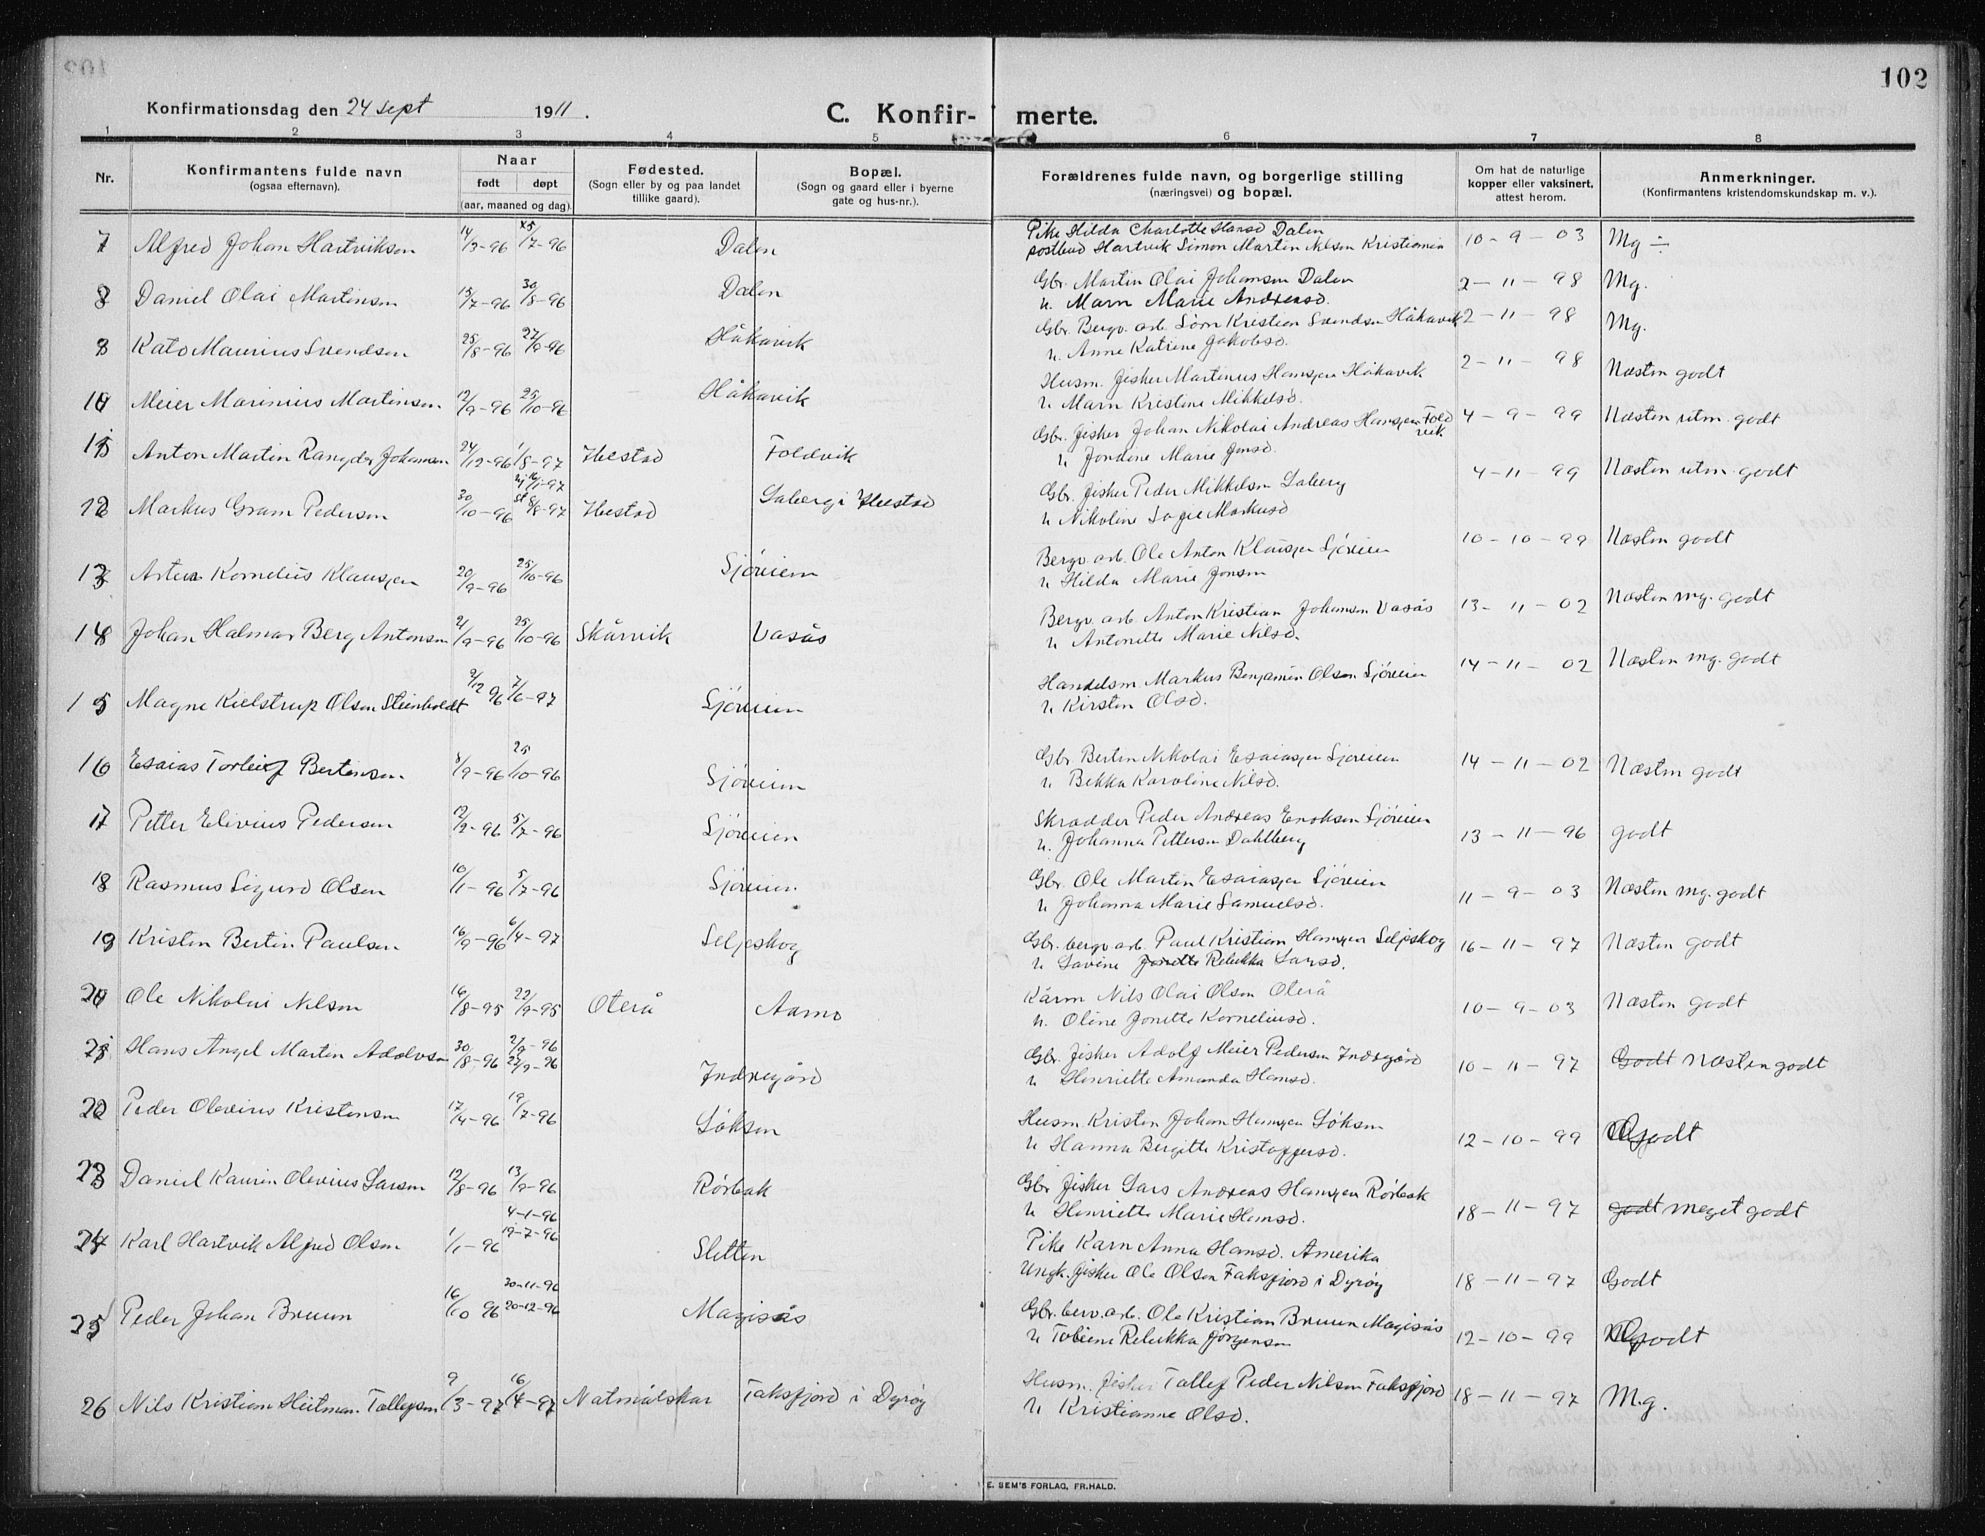 102
Konfirmationsdag den 24 sept 1911. C. Konfirmerte.
1 2 3 4 5 6 7 8
Nr. Konfirmantens fulde navn (ogsaa efternavn). Naar født døpt (aar, maaned og dag). Fødested. (Sogn eller by og paa landet tillike gaard). Bopæl. (Sogn og gaard eller i byerne gate og hus-nr.). Forældrenes fulde navn, og borgerlige stilling (næringsvei) og bopæl. Om hat de naturlige kopper eller vaksinert, attest herom. Anmerkninger. (Konfirmantens kristendomskundskap m. v.).
7 Alfred Johan Hartviksen 14/3-96 25/7-96 Dalen Pike Hilda Charlotte Hansd Dalen 10-9-03 Mg ÷
postbud Hartvik Simon Martin Nilsen Kristiania
8 Daniel Olai Martinsen 15/7-96 30/8-96 Dalen Gbr. Martin Olai Johansen Dalen 2-11-98 Mg.
u. Marn Marie Andreasd.
9 Kato Maurius Svendsen 25/8-96 27/9-96 Håkavik Gbr. Bergv. arb. Sørn Kristian Svendsen Håkavik 2-11-98 Mg.
u. Anne Katrine Jakobsd.
10 Meier Marinius Martinsen. 12/9-96 25/10-96 Håkavik Husm. fisker Martinus Hansen Håkavik 2-11-98 Næsten godt
u. Marn Kristine Mikkelsd.
11 Anton Martin Rangder Johansen 24/12-96 1/8-97 Ibestad Foldvik Gbr. fisker Johan Nikolai Andreas Hansen Foldvik 4-9-99 Næsten utm. godt
u Jondine Marie Jonsd.
12 Markus Gram Pedersen 30/10-96 16/1-97 st 8/8-97 Ibestad Laberg i Ibestad Gbr. fisker Peder Mikkelsen Laberg 4-11-99 Næsten utm. godt
u Nikoline Markusd
13 Kornelius Klausen 20/9-96 25/10-96 Sjøveien Bergv. arb. Ole Anton Klausen Sjøveien 10-10-99 Næsten godt
u Hilda Marie Jonsen
14 Johan Halmar Berg Antonsen 21/9-96 25/10-96 Skårvik Vasås Bergv. arb. Anton Kristian Johansen Vasås 13-11-02 Næsten mg. godt
u Antonette Marie Nilsd.
15 Magne Kielstrup Olsen Steinholdt 9/12 96 7/6-97 Sjøveien Handelsm Markus Benjamin Olsen Sjøveien 14-11-02 Næsten mg. godt
u Kirsten Olsd.
16 Esaias Torleif Bertinsen 8/9-96 25/10-96 Sjøveien Gbr Bertin Nikolai Esaiasen Sjøveien 14-11-02 Næsten godt
u Bekka Karoline Nilsd.
17 Petter Elivius Pedersen 12/2-96 5/7-96 Sjøveien Skrædder Peder Andreas Enoksen Sjøveien 13-11-96 godt
u. Johanna Pettersen Dahlberg
18 Rasmus Sigurd Olsen 10/1-96 5/7-96 Sjøveien. Gbr. Ole Martin Esaiasen Sjøveien 11-9-03 Næsten mg. godt
u Johanna Marie Samuelsd.
19 Kristen Bertin Paulsen 16/9-96 6/4-97 Seljeskog Gbr. bergv arb. Paul Kristian Hansen Seljeskog 16-11-97 Næsten godt
u Lavine Jonette Rebekka Larsd.
20 Ole Nikolai Nilsen 16/8-95 22/9-95 Oterå Aarno Kårm Nils Olai Olsen Oterå 10-9-03 Næsten godt
u. Oline Jonette Korneliusd.
21 Hans Angel Martin Adolvsen 30/8-96 2/9-96 27/9-96 Indregård Gbr. fisker Adolf Meier Pedersen Indregård 10-11-97 Godt Næsten godt
u Henriette Amanda Hansd.
22 Peder Olevius Kristensen 17/4-96 19/7-96 Løksen Husm. Kristen Johan Hansen Løksen 12-10-99 Godt
u Hanna Bergitte Kristoffersd.
23 Daniel Kaurin Olevius Larsen 12/8-96 13/9-96 Rørbak Gbr fisker Lars Andreas Hansen Rørbak 18-11-97 godt meget godt
u Henriette Marie Hansd.
24 Karl Hartvik Alfred Olsen 1/1-96 4-1-96 19-7-96 Sletten Pike Karn Anna Hansd. Amerika 18-11-97 Godt
Ungk. fisker Ole Olsen Faksfjord i Dyrøy
25 Peder Johan Bruun 16/10 96 30-11-96 20-12-96 Magisås Gbr. berv. arb. Ole Kristian Bruun Magisås 12-10-99 Godt
u Tobiene Rebekka Jørgensen
26 Nils Kristian Heitman Tollefsen 9/3-97 16/4-97 Natmålskar Faksfjord i Dyrøy Husm. fisker Tollef Peder Nilsen Faksfjord 18-11-97 M.g.
u Kristianne Olsd.
E. SEM'S FORLAG, FR.HALD.